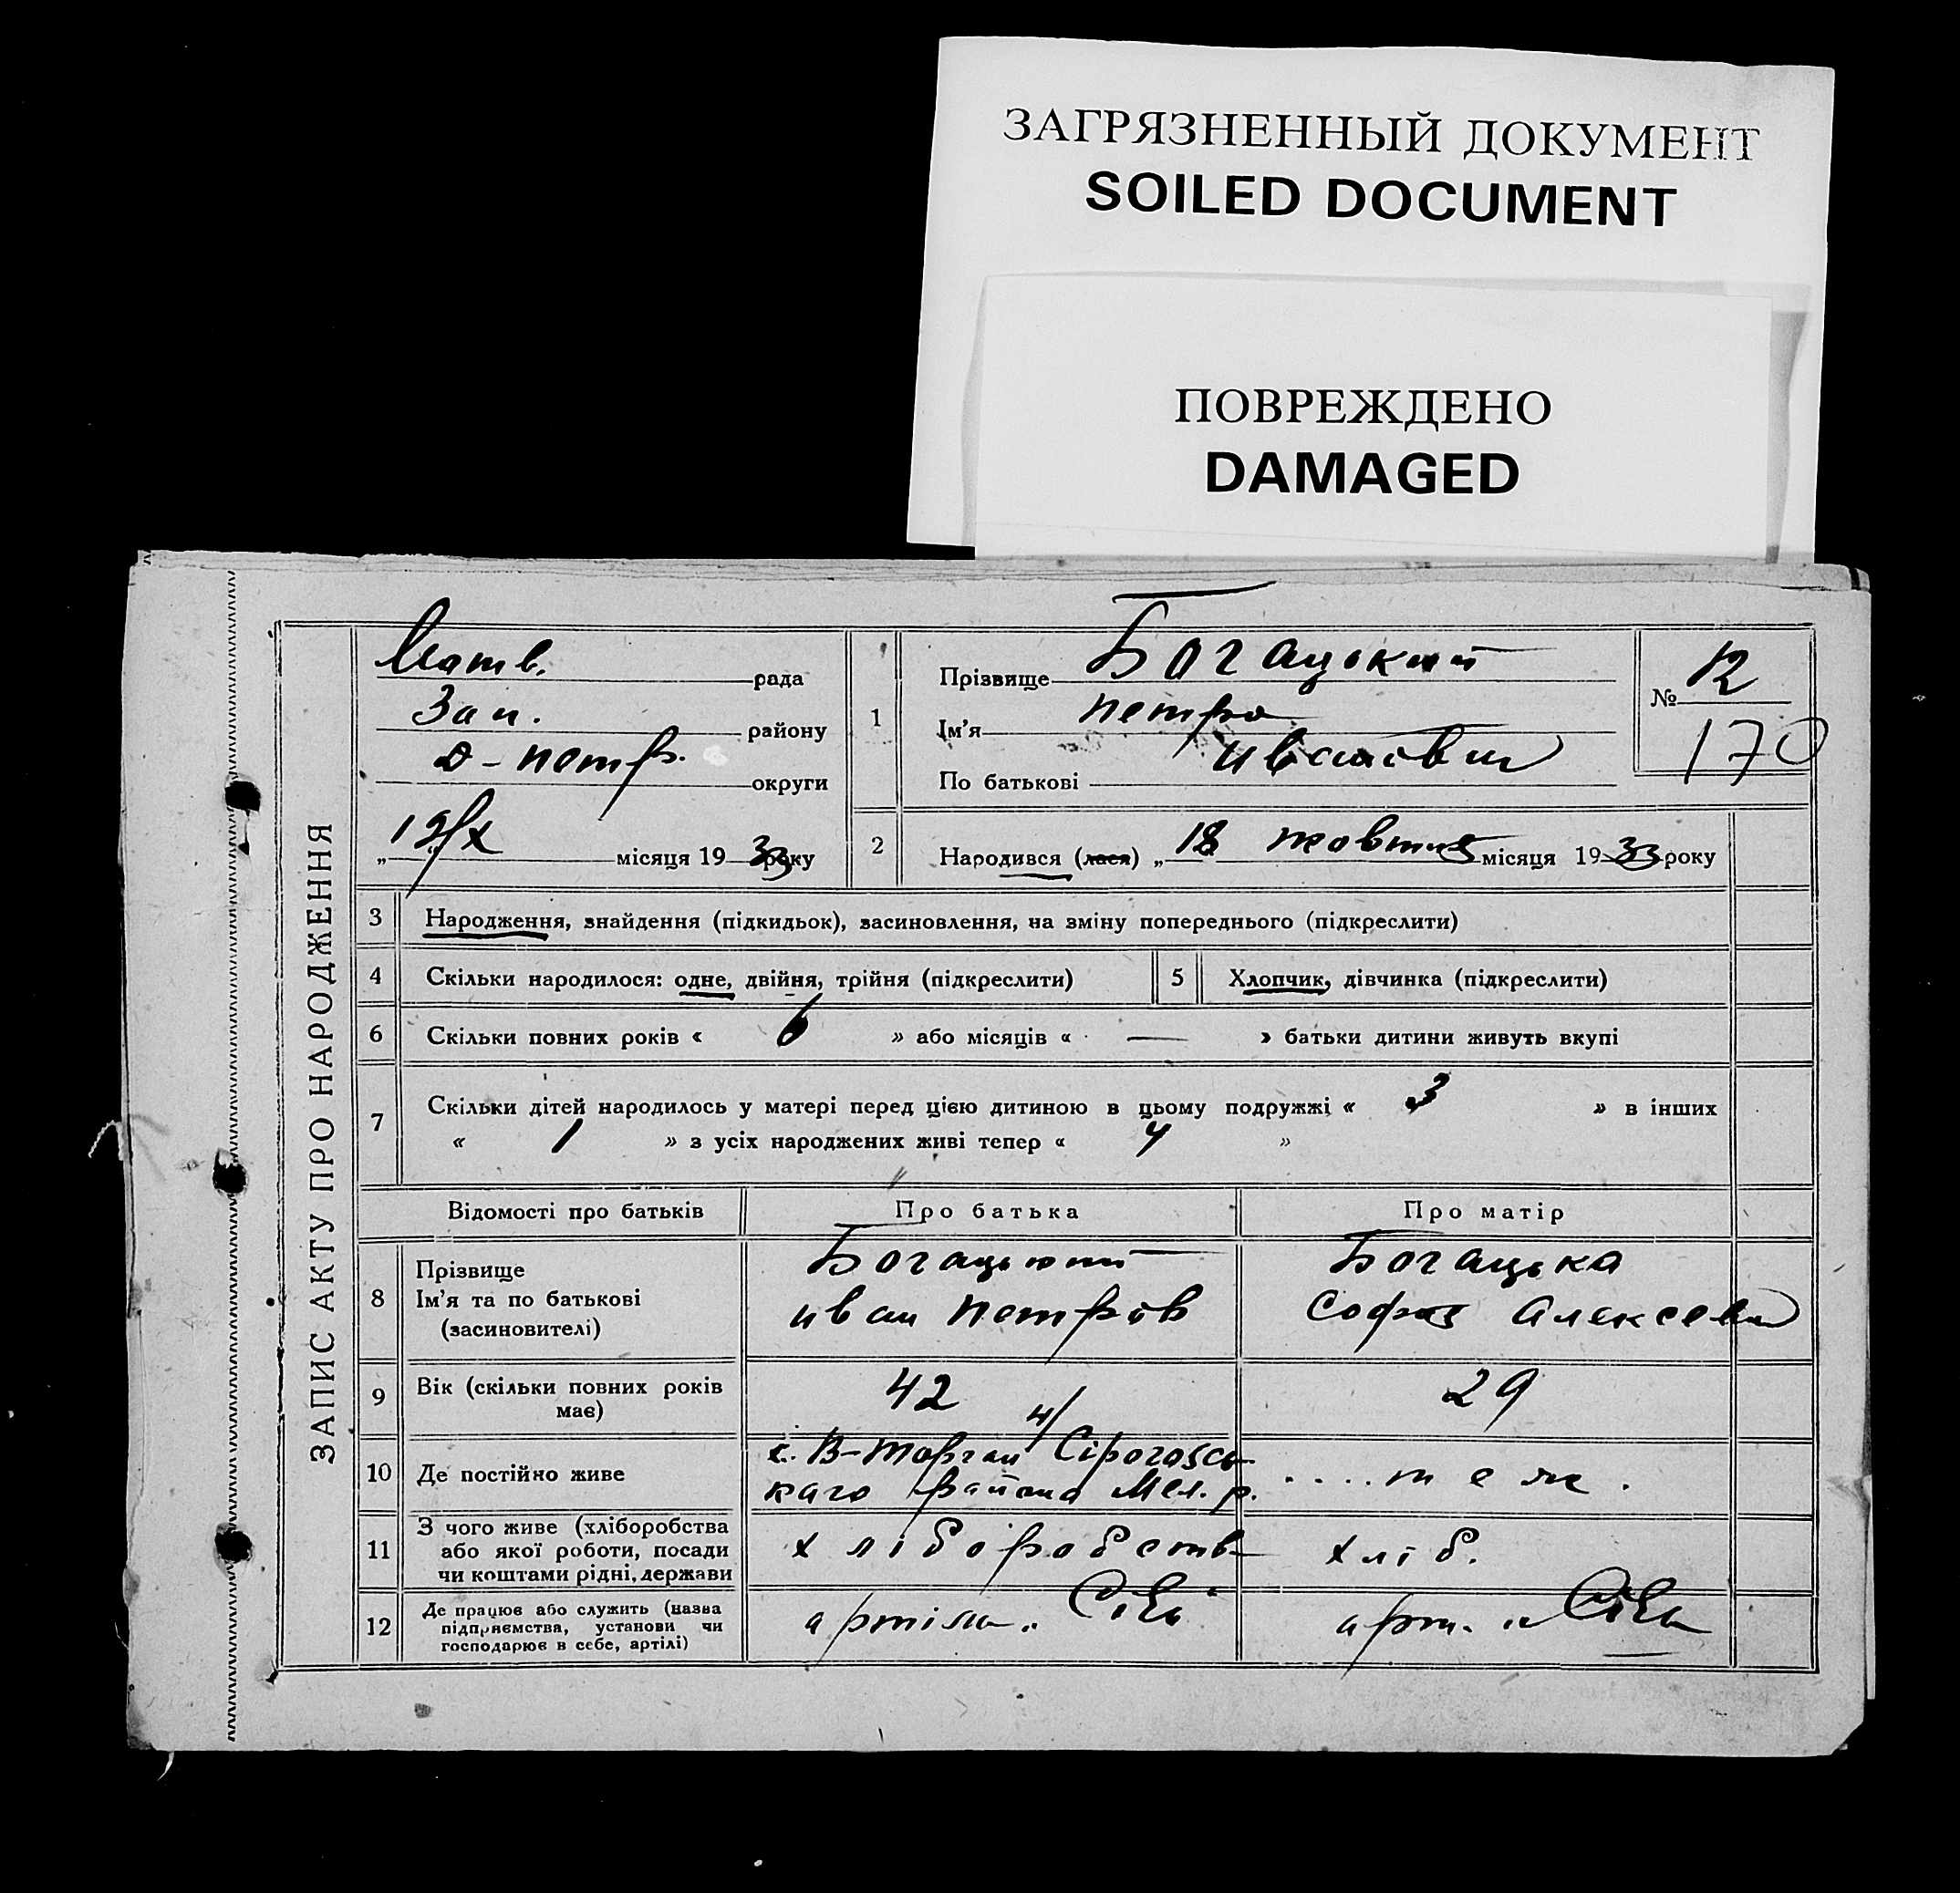 ЗАГРЯЗНЕННЫЙ ДОКУМЕНТ
SOILED DOCUMENT
ПОВРЕЖДЕНО
DAMAGED
ЗАПИС АКТУ ПРО НАРОДЖЕННЯ
Матв. рада
Зап. району
Д-петр. округи
„ 19/X місяця 19 33 року
1
Прізвище Богацький
Ім'я Петро
По батькові Иванович
№ 12
170
2
Народився (лася) „ 18 жовтня місяця 19 33 року
3 Народження, знайдення (підкидьок), засиновлення, на зміну попереднього (підкреслити)
4 Скільки народилося: одне, двійня, трійня (підкреслити)
5 Хлопчик, дівчинка (підкреслити)
6 Скільки повних років « 6 » або місяців « — » батьки дитини живуть вкупі
7 Скільки дітей народилось у матері перед цією дитиною в цьому подружжі « 3 » в інших
« 1 » з усіх народжених живі тепер « 4 »
Відомості про батьків
Про батька
Про матір
8
Прізвище
Ім'я та по батькові
(засиновителі)
Богацький
Иван Петров
Богацька
Софья Алексеевн
9
Вік (скільки повних років
має)
42
29
10 Де постійно живе
В-Торгаи Сірогозсь-
кого района Мел. р.
.... теж.
11
З чого живе (хліборобства
або якої роботи, посади
чи коштами рідні, держави
хліборобств
хліб.
12
Де працює або служить (назва
підприємства, установи чи
господарює в себе, артілі)
артіль
арт.